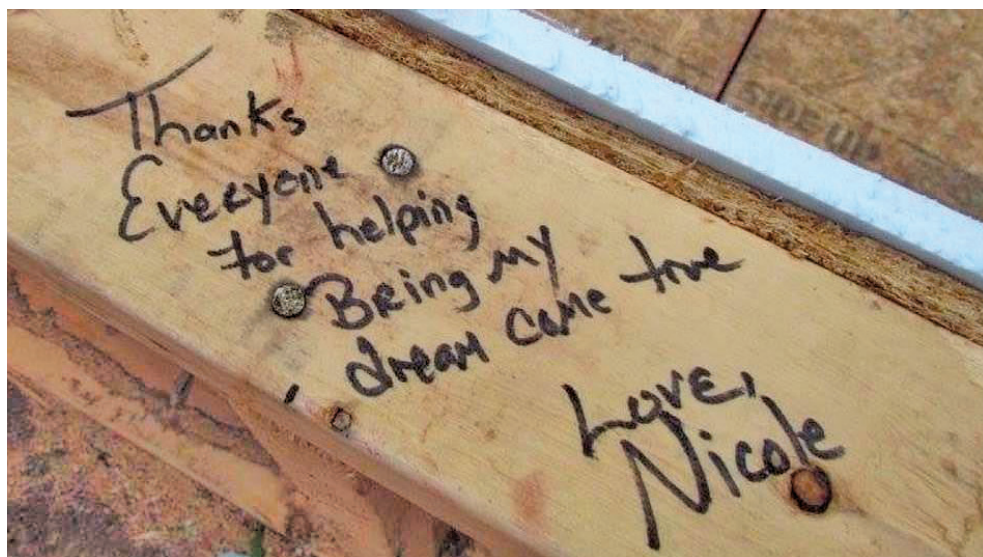 Thanks
Everyone
for helping
Bring my
dream come true
Love,
Nicole
SIDE